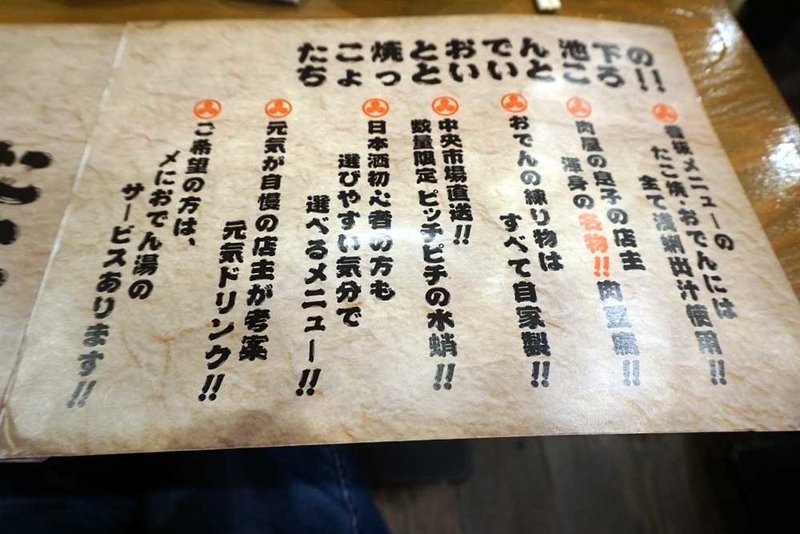 たこ焼とおでん池下の
ちょっといいところ!!
看板メニューの
たこ焼・おでんには
全て浅利出汁使用!!
肉屋の息子の店主
渾身の名物!!肉豆腐!!
おでんの練り物は
すべて自家製!!
中央市場直送!!
数量限定 ピッチピチの水蛸!!
日本酒初心者の方も
選びやすい気分で
選べるメニュー!!
元気が自慢の店主が考案
元気ドリンク!!
ご希望の方は、
〆におでん湯の
サービスあります!!